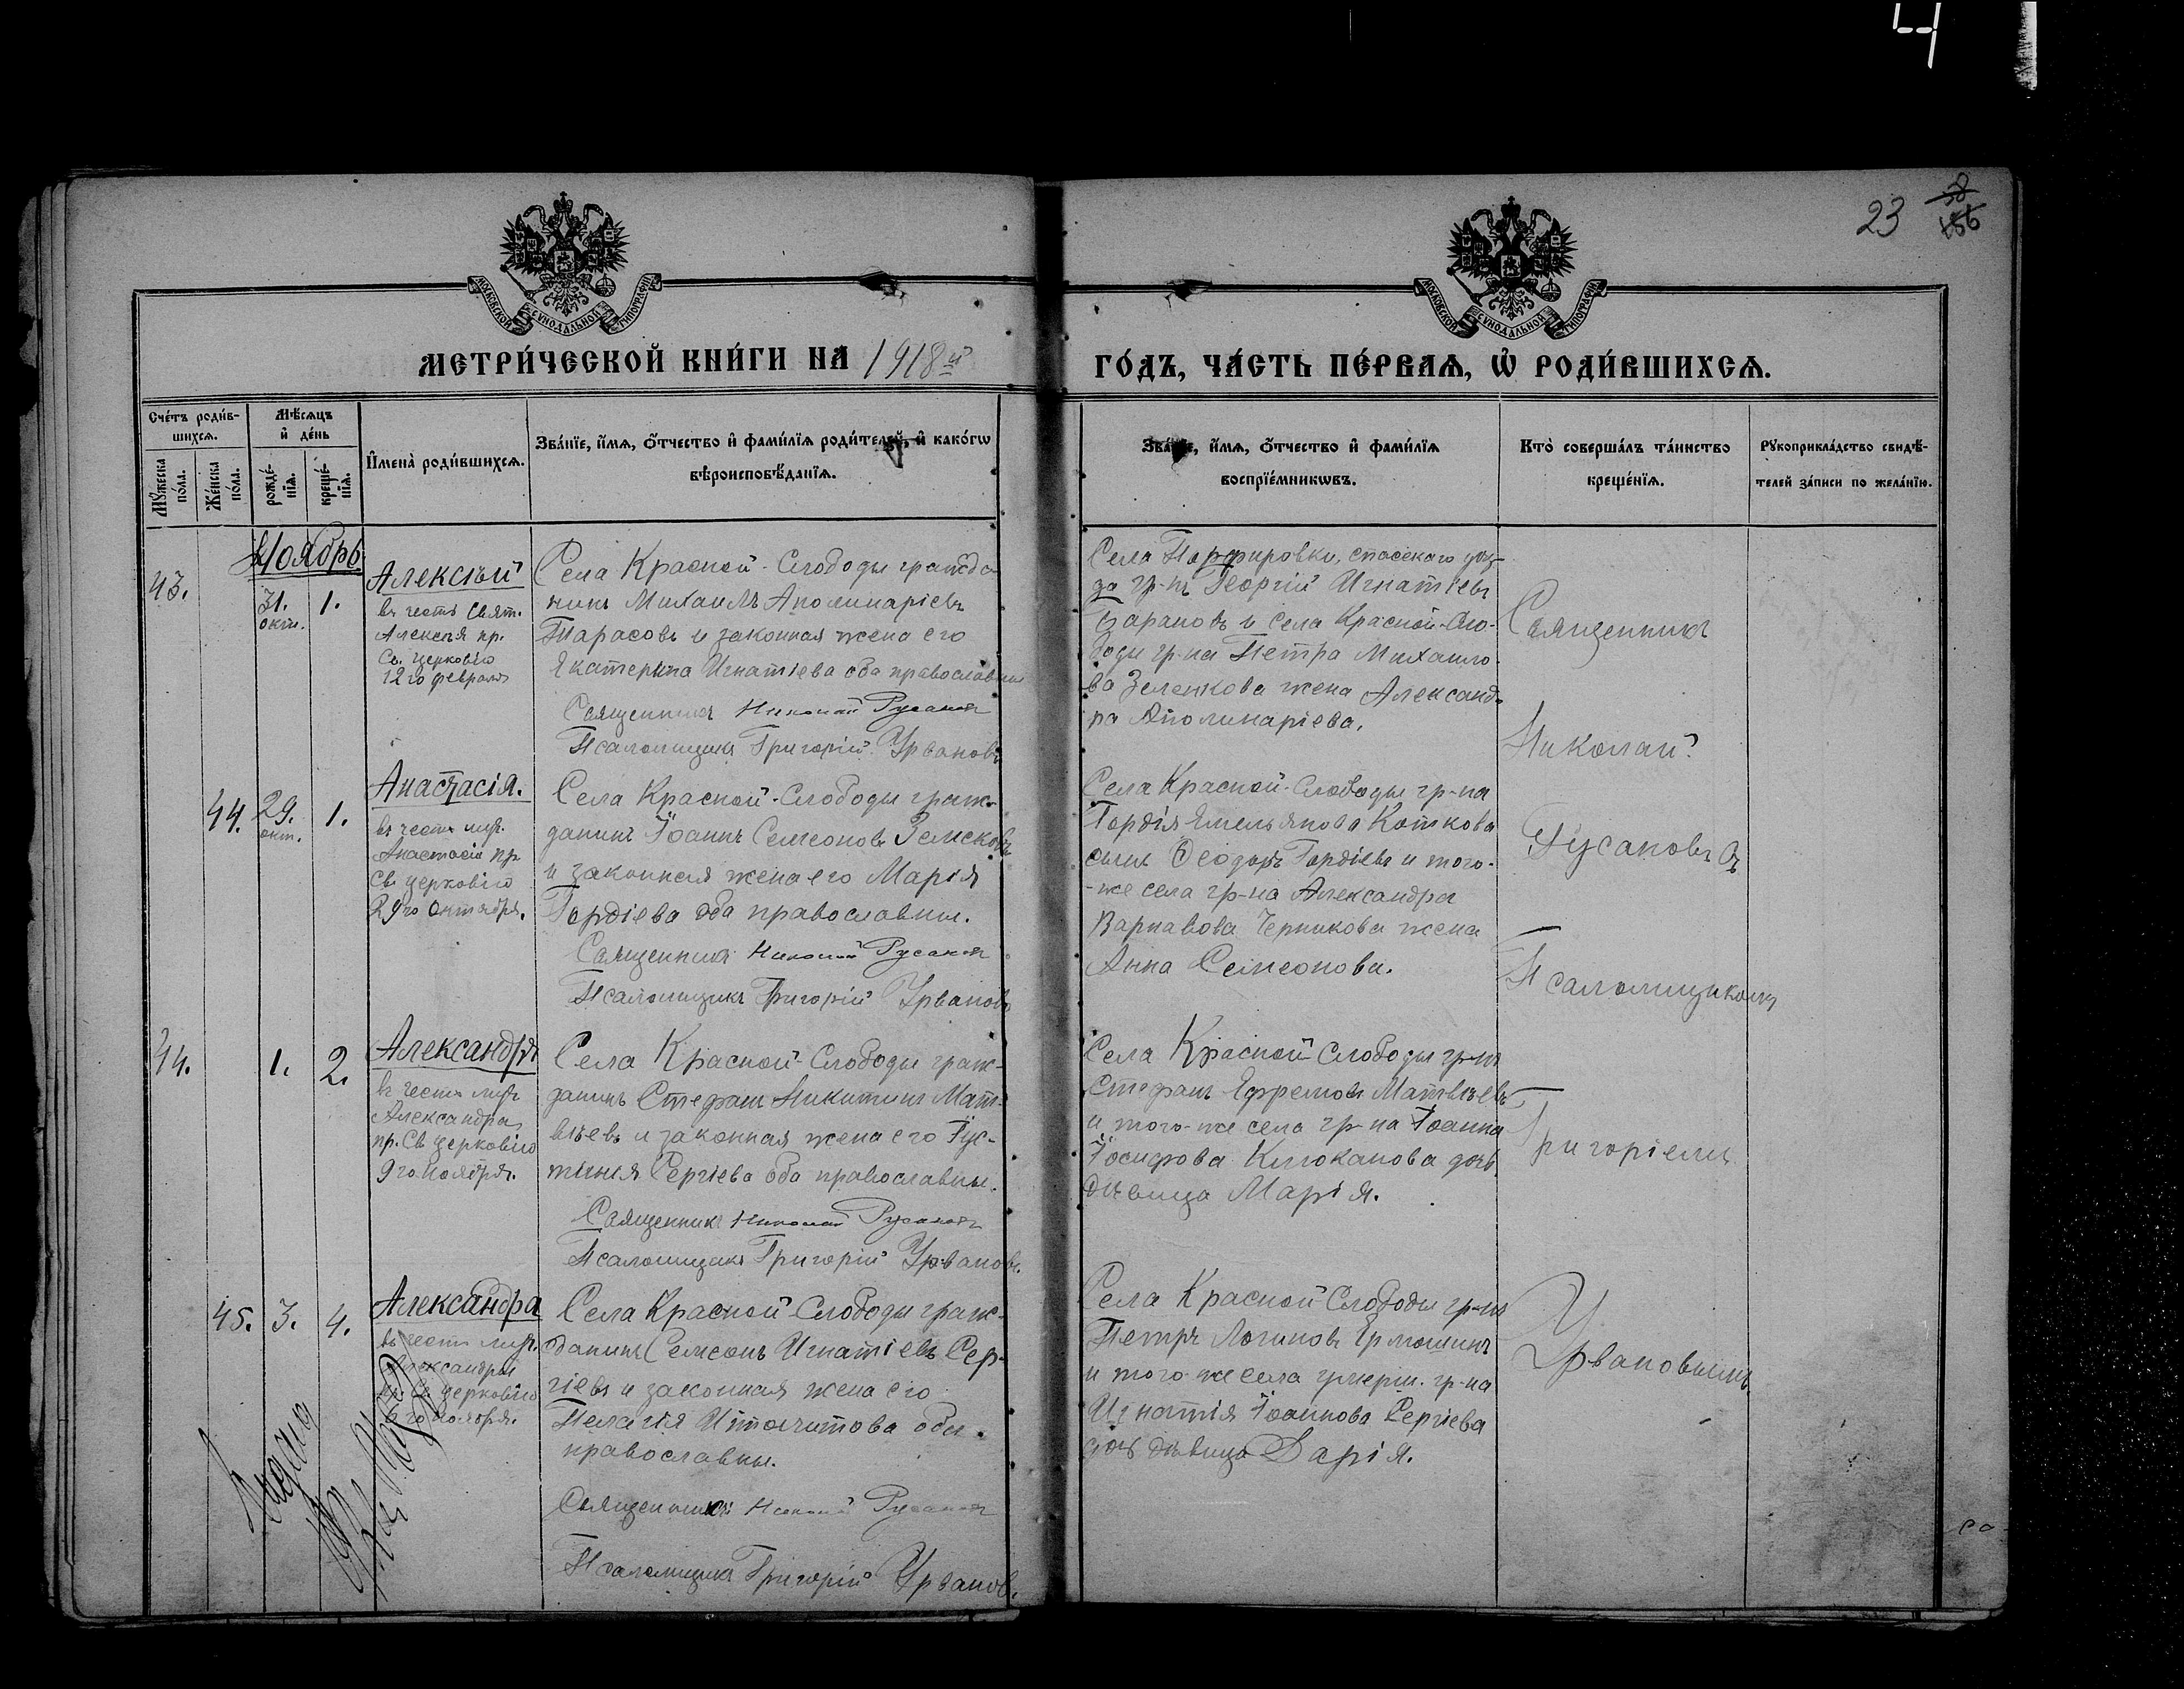 4
23
38
156
МОСКОВСКОЙ СѴНОДАЛЬНОЙ ТИПОГРАФІИ
МОСКОВСКОЙ СѴНОДАЛЬНОЙ ТИПОГРАФІИ
МЕТРИ́ЧЕСКОЙ КНИ́ГИ НА 1918й
ГО́ДЪ, ЧА́СТЬ ПЕ́РВАѦ, Ѽ РОДИ́ВШИХСѦ.
Сче́тъ роди́в-
шихсѧ.
Мѣ́сѧцъ
и҆ де́нь
Мꙋ́жеска
по́ла.
Же́нска
по́ла.
рожде́-
нїѧ.
креще́-
нїѧ.
И҆мена̀ роди́вшихсѧ.
Зва́нїе, и҆́мѧ, ѻ҆́тчество и҆ фами́лїѧ роди́телей, и҆ како́гѡ
вѣроисповѣ́данїѧ.
Зва́нїе, и҆́мѧ, ѻ҆́тчество и҆ фами́лїѧ
воспрїе́мникѡвъ.
Кто̀ соверша́лъ та́инство
креще́нїѧ.
Рꙋкоприкла́дство свидѣ́-
телей за́писи по жела́нїю.
Ноябрь
43.
31.
окт.
1.
Алексѣй
въ честь Свят.
Алексѣя пр.
Св. церковію
12го февраля
Села Красной-Слободы гражда-
нинъ Михаилъ Аполинаріевъ
Тарасовъ и законная жена его
Екатерина Игнатіева оба православны
Священникъ Николай Русановъ
Псаломщикъ Григорій Урвановъ
Села Порфировки, Спасскаго уѣз-
да гр-нъ Георгій Игнатіевъ
Барановъ и села Красной-Сло-
боды гр-на Петра Михаило-
ва Зеленкова жена Александ-
ра Аполинаріева.
44.
29.
окт.
1.
Анастасія.
въ честь муч.
Анастасіи пр.
Св. церковію
29го Октября.
Села Красной-Слободы граж-
данинъ Іоаннъ Семеоновъ Земсковъ
и законная жена его Марія
Гордіева оба православны.
Священникъ Николай Русановъ
Псаломщикъ Григорій Урвановъ
Села Красной-Слободы гр-на
Гордія Емельянова Коткова
сынъ Ѳеодоръ Гордіевъ и того-
-же села гр-на Александра
Варнавова Черникова жена
Анна Семеонова.
44.
1.
2.
Александръ
въ честь муч.
Александра
пр. Св. церковію
9го Ноября.
Села Красной-Слободы граж-
данинъ Стефанъ Никитинъ Мат-
вѣевъ и законная жена его Іус-
тинія Сергіева оба православны.
Священникъ Николай Русановъ
Псаломщикъ Григорій Урвановъ.
Села Красной-Слободы гр-нъ
Стефанъ Ефремовъ Матвѣевъ
и того-же села гр-на Іоанна
Іосифова дочь
дѣвица Марія.
45.
3.
4.
Александра
въ честь муч.
Александры
пр. Св. церковію
6го Ноября.
Села Красной Слободы граж-
данинъ Семеонъ Игнатіевъ Сер-
гіевъ и законная жена его
Пелагія оба
православны.
Священникъ Николай Русановъ
Псаломщикъ Григорій Урвановъ.
Села Красной Слободы гр-нъ
Петръ Логиновъ Ермошинъ
и того-же села умерш. гр-на
Игнатія Іоаннова Сергіева
дочь дѣвица Дарія.
Священникъ
Николай
Русановъ съ
Псаломщикомъ
Григоріемъ
Урвановымъ